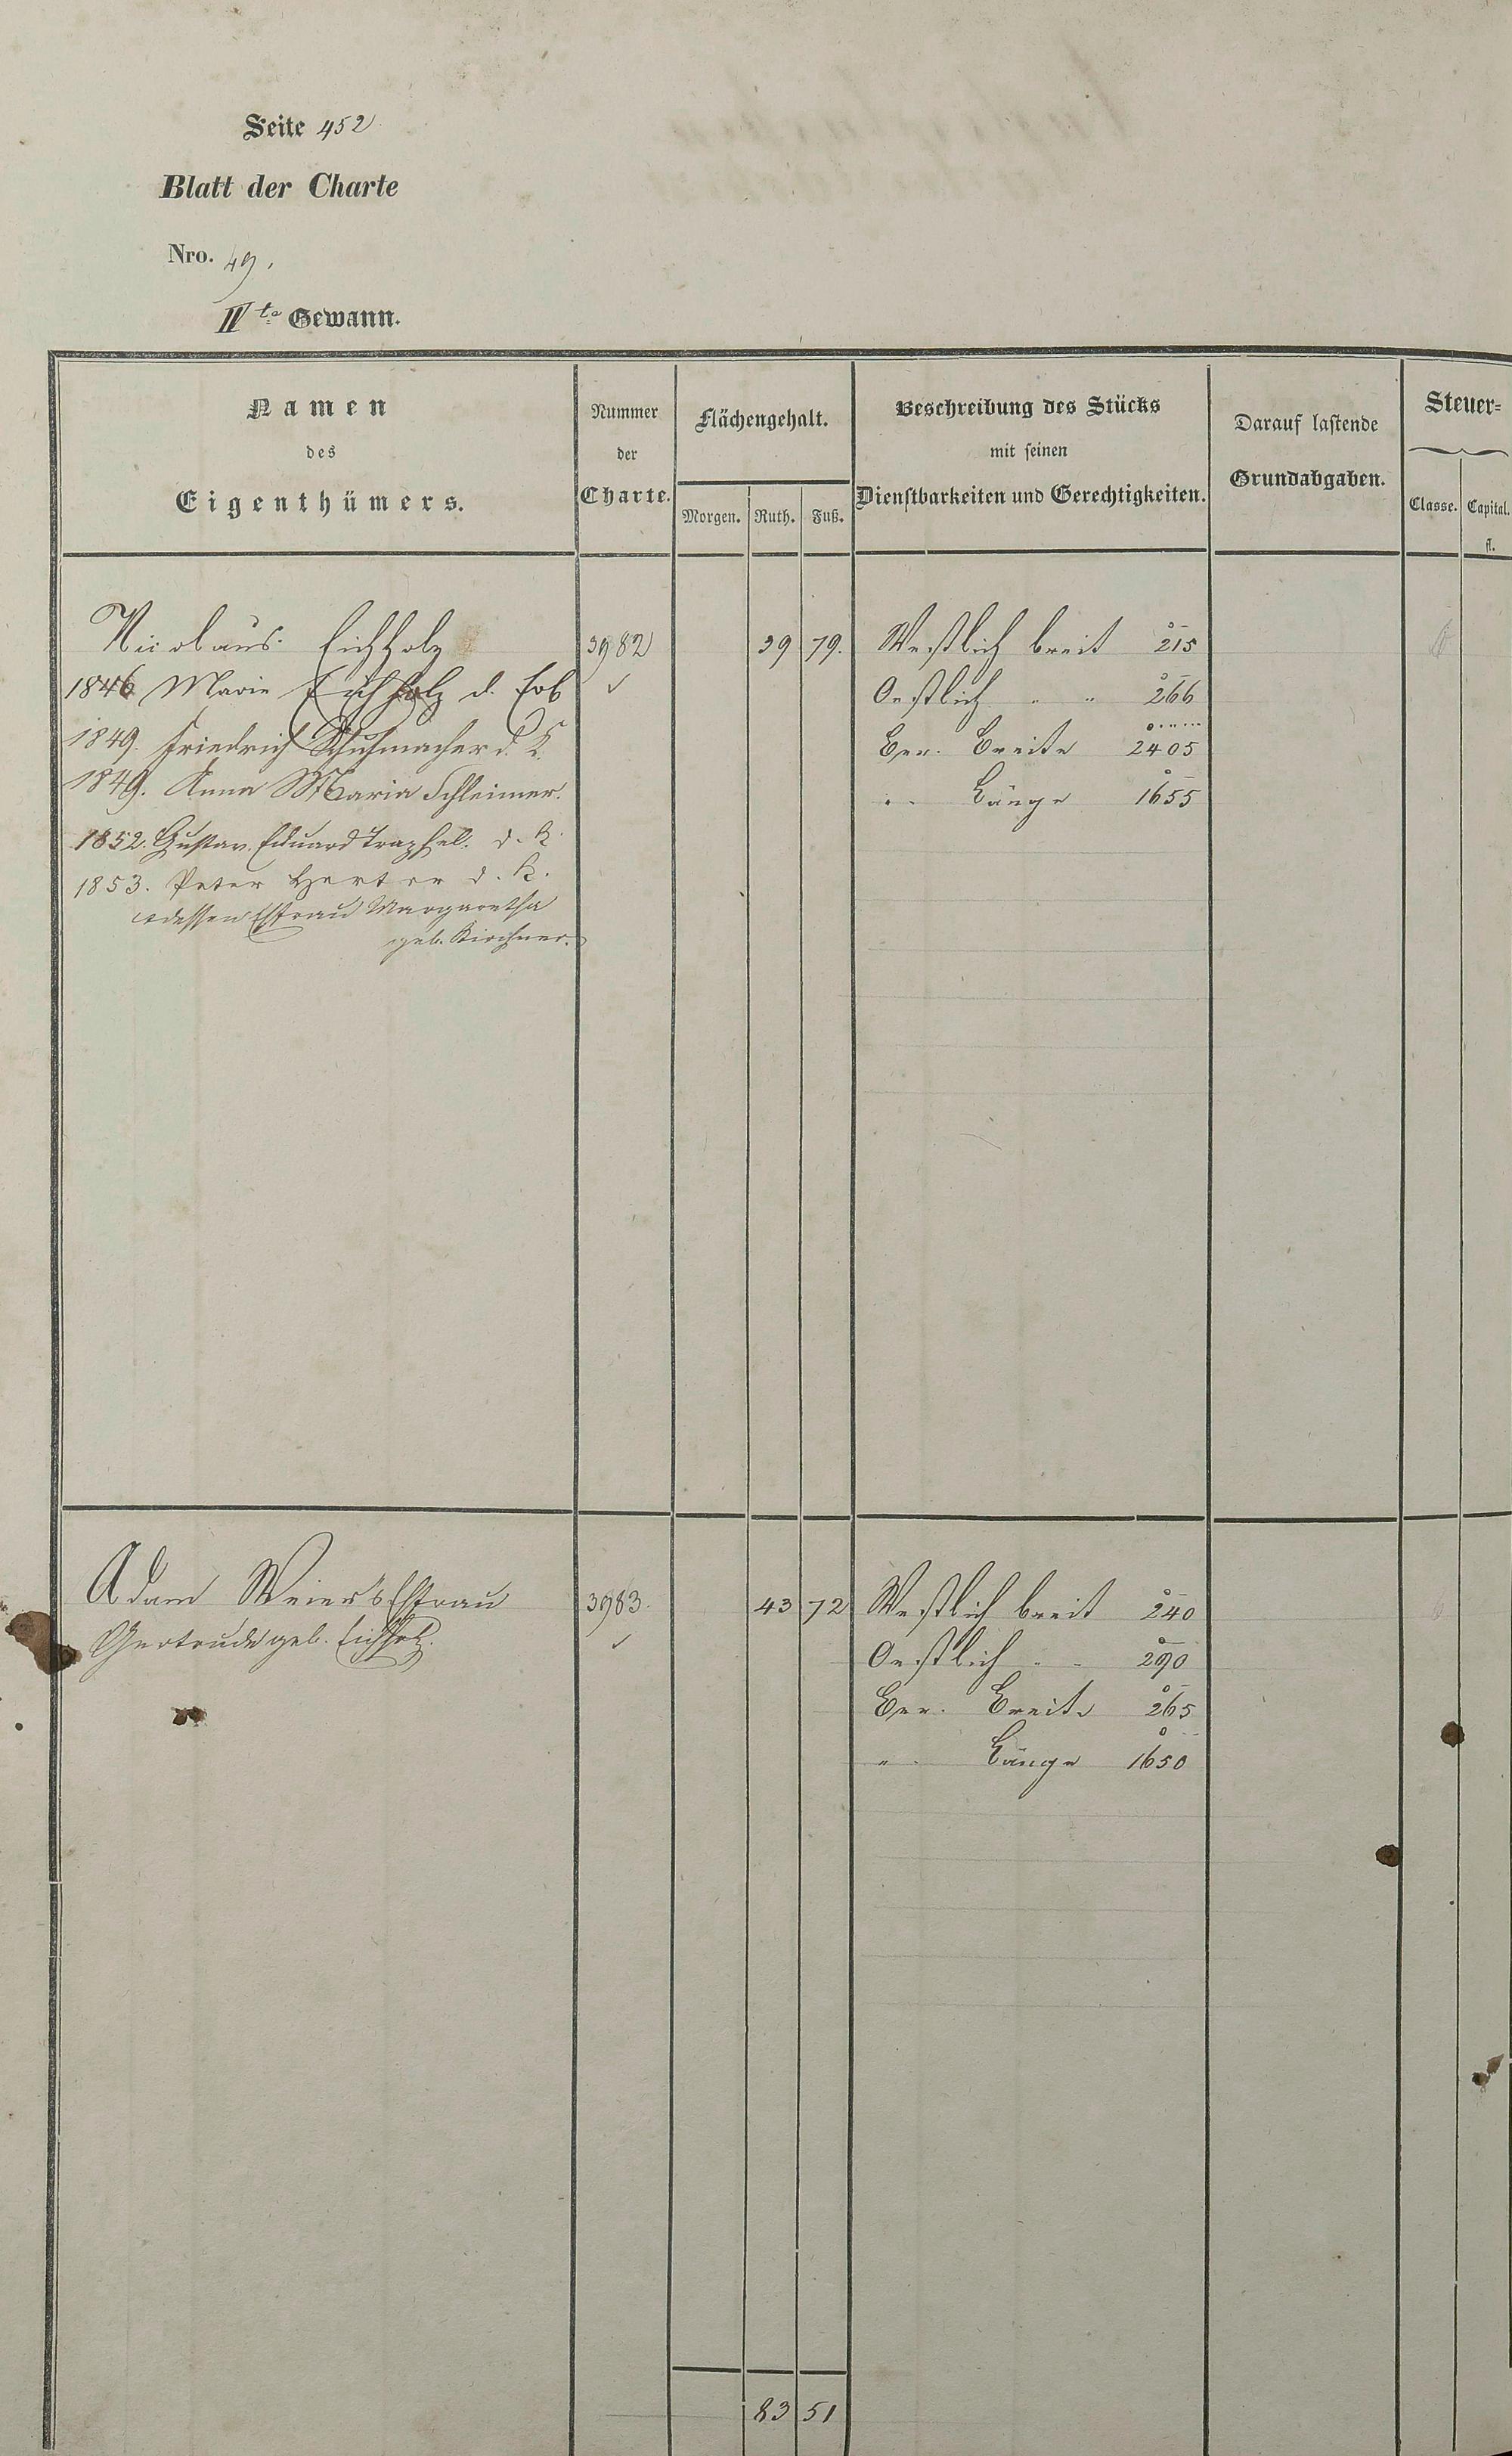 Seite 452
Blatt der Charte
Nro. 49.
IIte Gewann.
Namen
des
Eigenthümers.
Nummer
der
Charte.
Flächengehalt.
Morgen. Ruth. Fuß.
Beschreibung des Stücks
mit seinen
Dienstbarkeiten und Gerechtigkeiten.
Darauf lastende
Grundabgaben.
Steuer=
Classe. Capital.
fl.
Nicolaus Eichholz 3982 39 79. Westlich breit 215
1846 Marie Eichholz d. Erb ✓ Oestlich " " 266
1849. Friedrich Schuhmacher d. K. Ber. Breite 2405
1849. Anna Maria Schleimer. " Länge 1655
1852. Gustav Eduard Traphel. d. K.
1853. Peter Herter d. K.
dessen Ehfrau Margaretha
geb. Kirchner.
Adam Weiers Ehfrau 3983. 43 72 Westlich breit 240
Gertrude geb. Eichholz. ✓ Oestlich " " 290
Ber. Breite 265
" Länge 1650
83 51